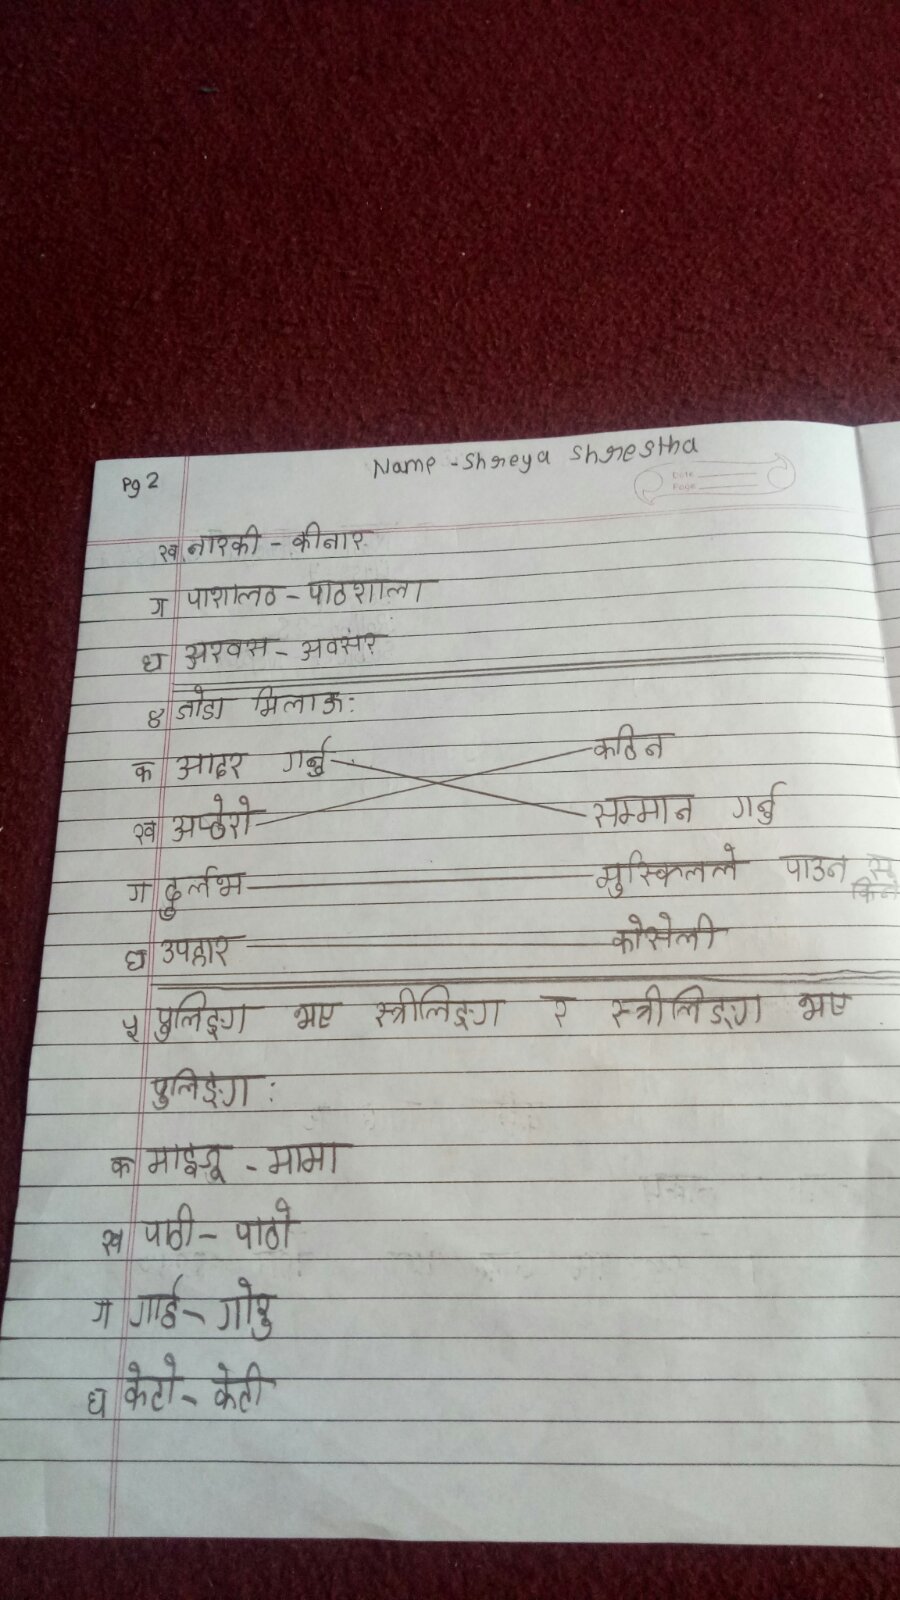 Pg 2
Name - Shreya Shrestha
Date
Page
ख नारकी - कीनार
ग पाशालठ - पाठशाला
घ अरवस - अवसर
४ जोडा मिलाऊ:
क आदर गर्नु कठिन
ख अप्ठेरो सम्मान गर्नु
ग दुर्लभ मुस्किलले पाउन
घ उपहार कोसेली
५ पुलिङ्ग भए स्त्रीलिङ्ग र स्त्रीलिङ्ग भए
पुलिङ्ग:
क माइजू - मामा
ख पाठी - पाठो
ग गाई - गोरु
घ केटो - केटी